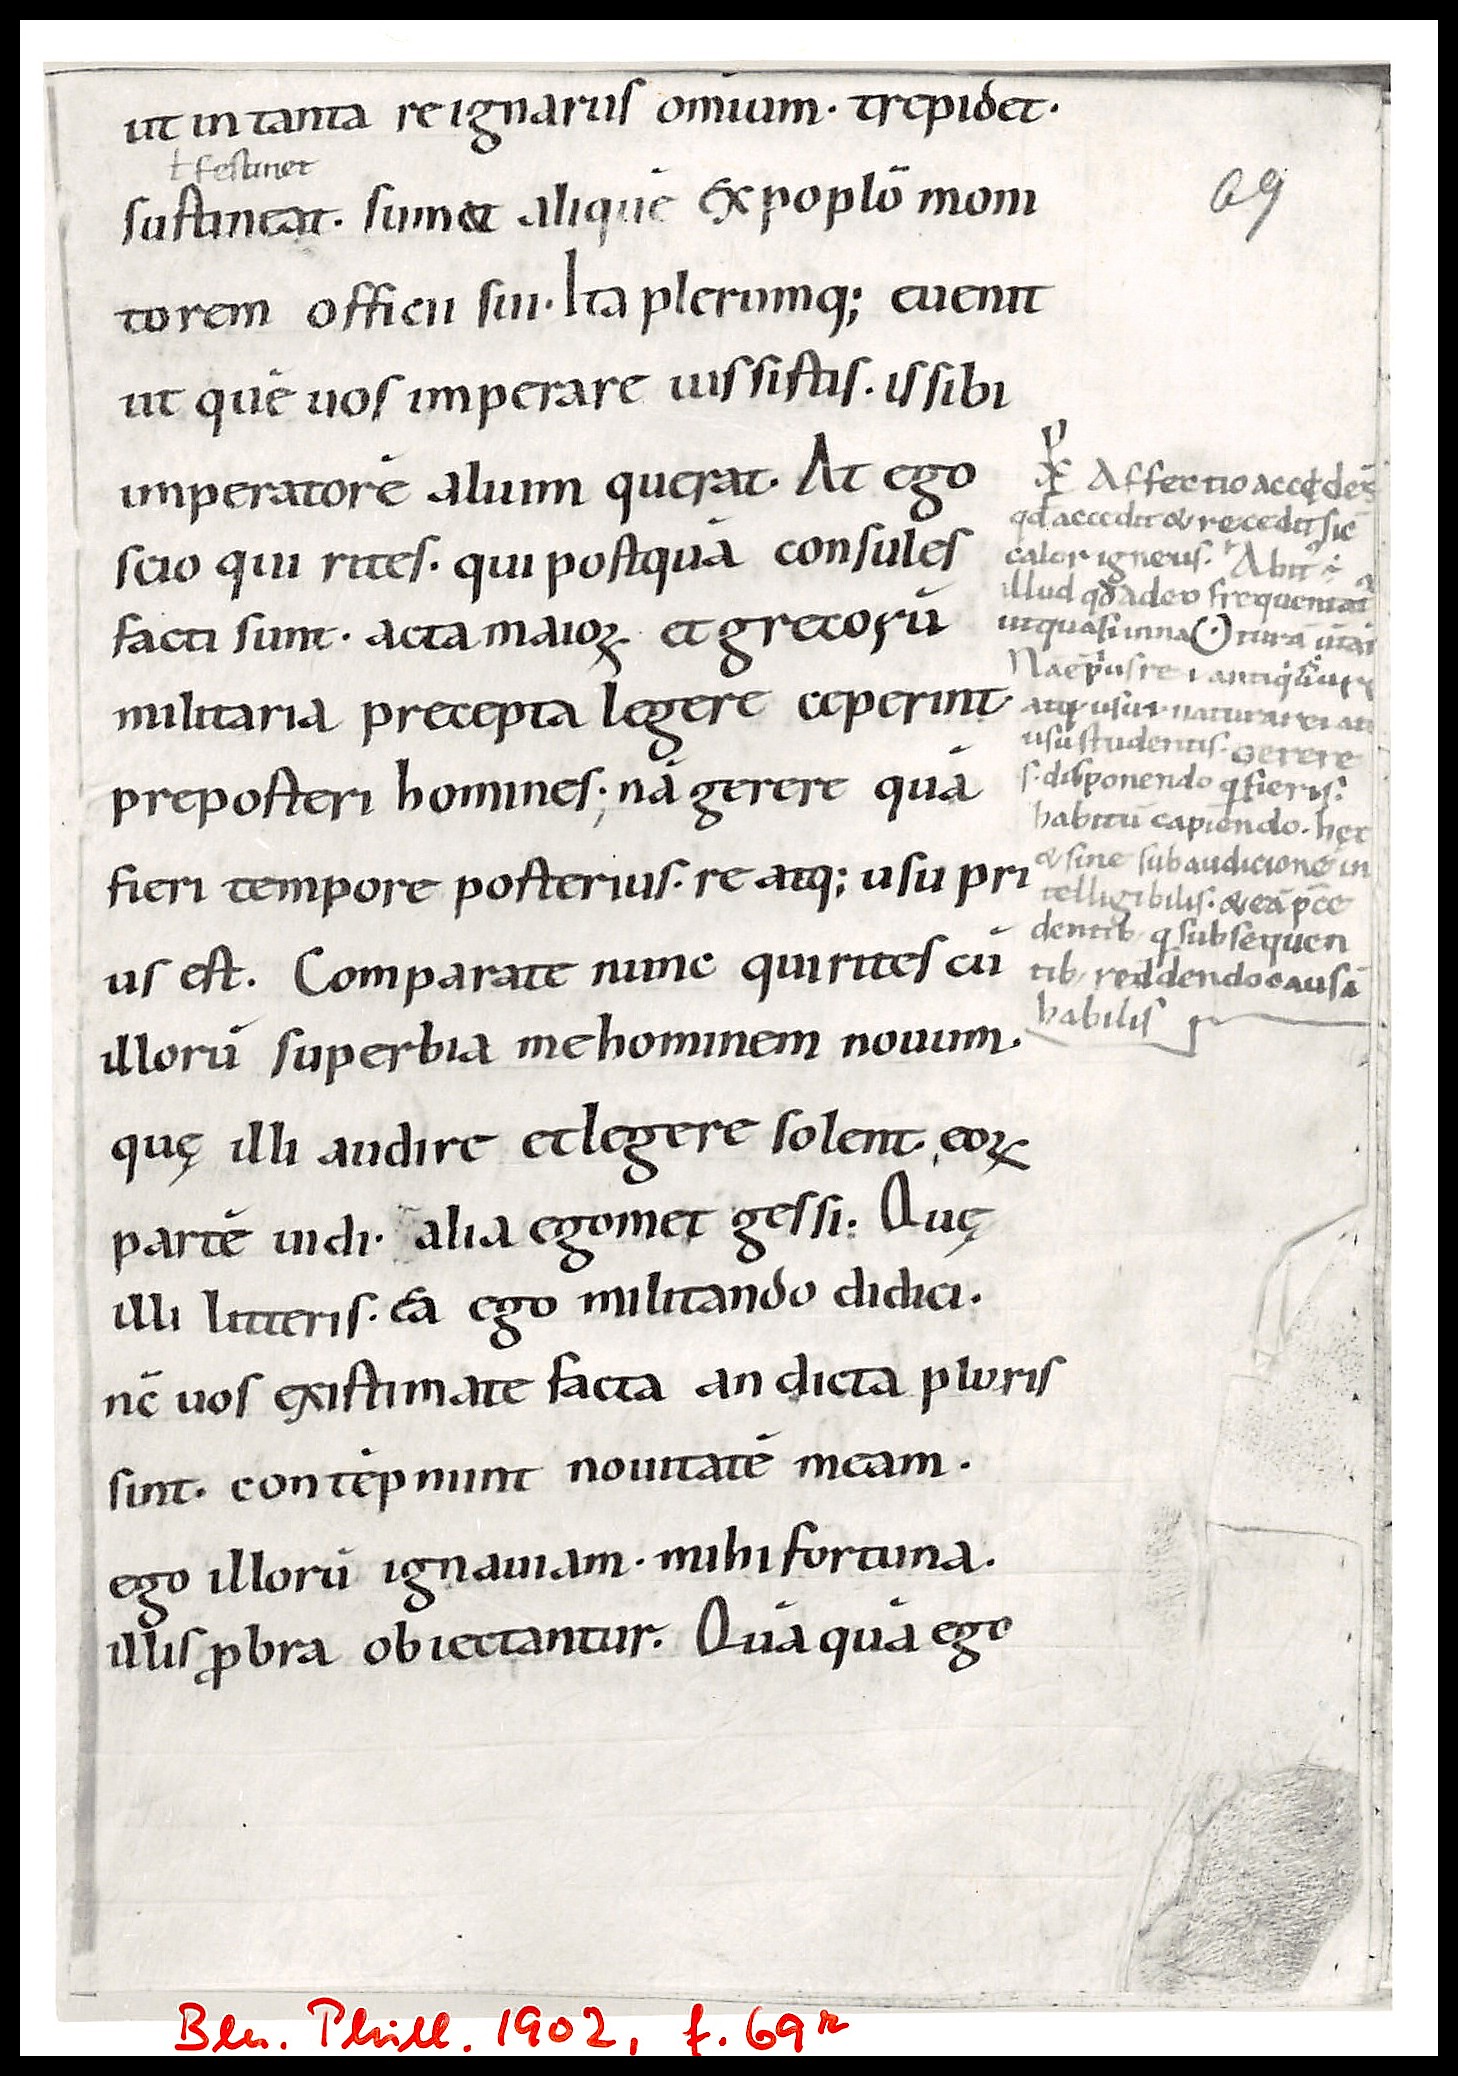 ut in tanta re ignarus om̄ium· trepidet·
ƚ festinet
69
sustineat· sumat aliquē ex poplō moni
torem officii sui· Ita plerumq; euenit
ut quē uos imperare iussistis· is sibi
imperatorē alium querat· At ego
scio quirites· qui postquā consules
facti sunt· acta maioꝝ et grecorū
militaria precepta legere ceperint·
preposteri homines; nā gerere quā
fieri tempore posterius· re atq; usu pri
us est. Comparate nunc quirites cū
illorū superbia me hominem nouum·
quę illi audire et legere solent· eoꝝ
partē uidi· alia egomet gessi: Quę
illi litteris· ea ego militando didici·
nc̄ uos existimate facta an dicta pluris
sint· contēpnunt nouitatē meam·
ego illorū ignauiam· mihi fortuna·
illis ꝓbra obiectantur· Quāquā ego
Affectio accędēs
qđ accedit & recedit sic̄
calor igneus· Abit
illud qđ adeo frequentat̄
ut quasi inna(·)turā
usū studentis· Gerere
s· disponendo q̄ fieri s·
habitū capiendo· hęc
& sine subaudicione in
telligibilis· & eā p̄ce
dentib; q̄ subsequen
tib; reddendo causā
habilis
Bln. Phill. 1902, f. 69r